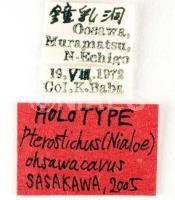 鐘乳洞
Oosawa,
Muramatsu,
N-Echigo
19.VIII.1972
Col.K.Baba
HOLOTYPE
Pterostichus(Nialoe)
ohsawacavus
SASAKAWA, 2005